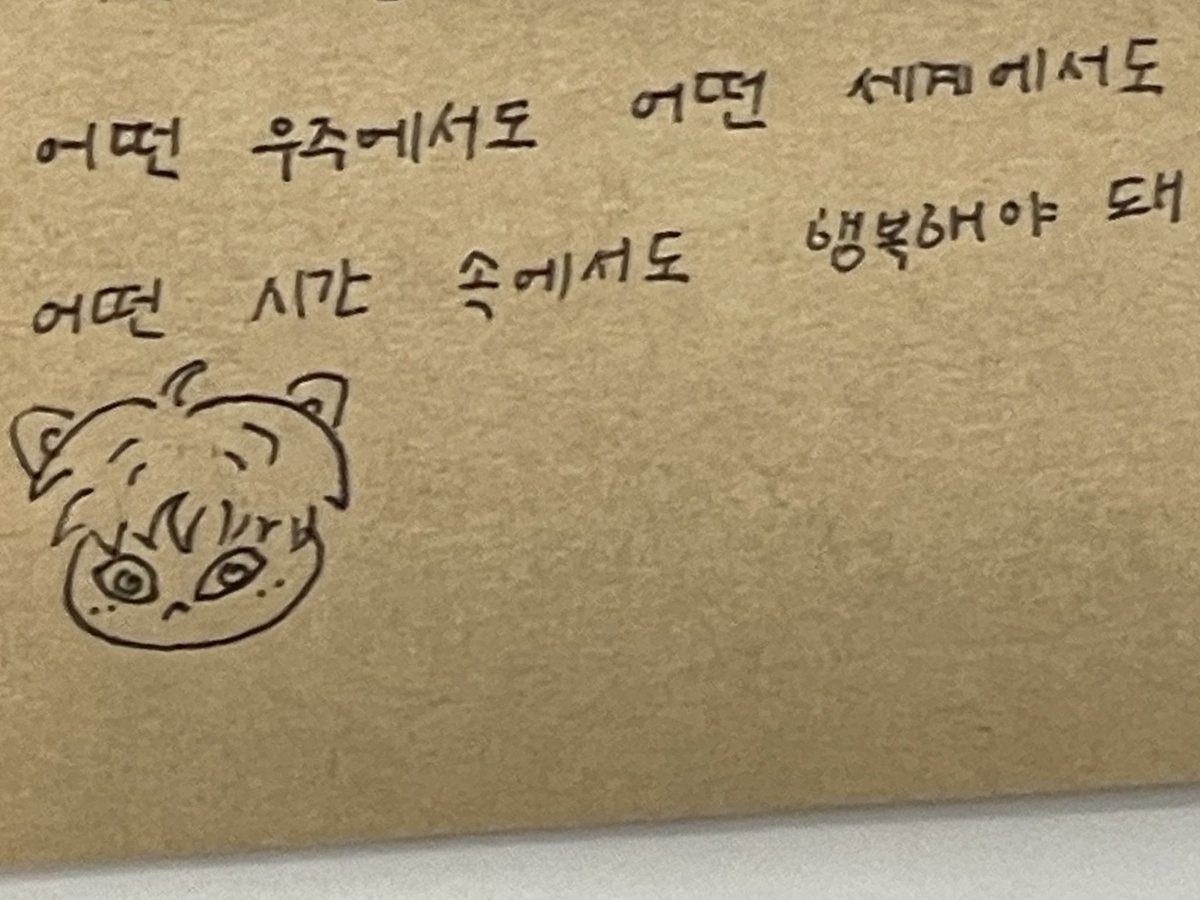 어떤 우주에서도 어떤 세계에서도
어떤 시간 속에서도 행복해야 돼